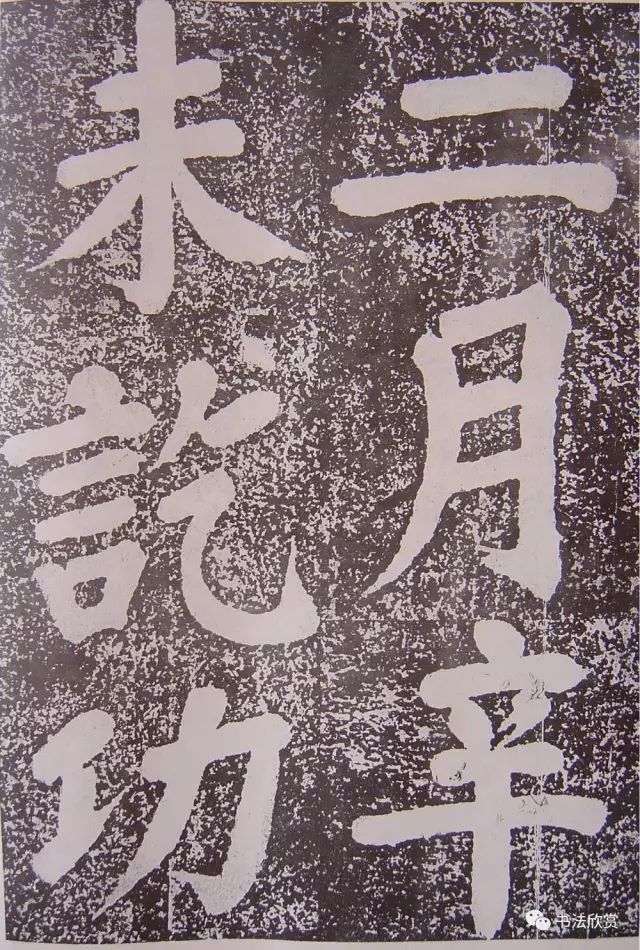 二月辛
未訖功
书法欣赏